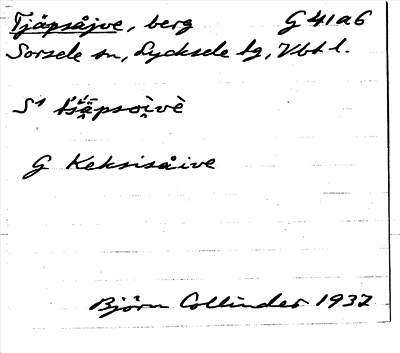 Tjåpsåjve, berg G 41a6
Sorsele sn, Lycksele lg, Vbt l.
S1
G Keksisåive
Björn Collinder 1937